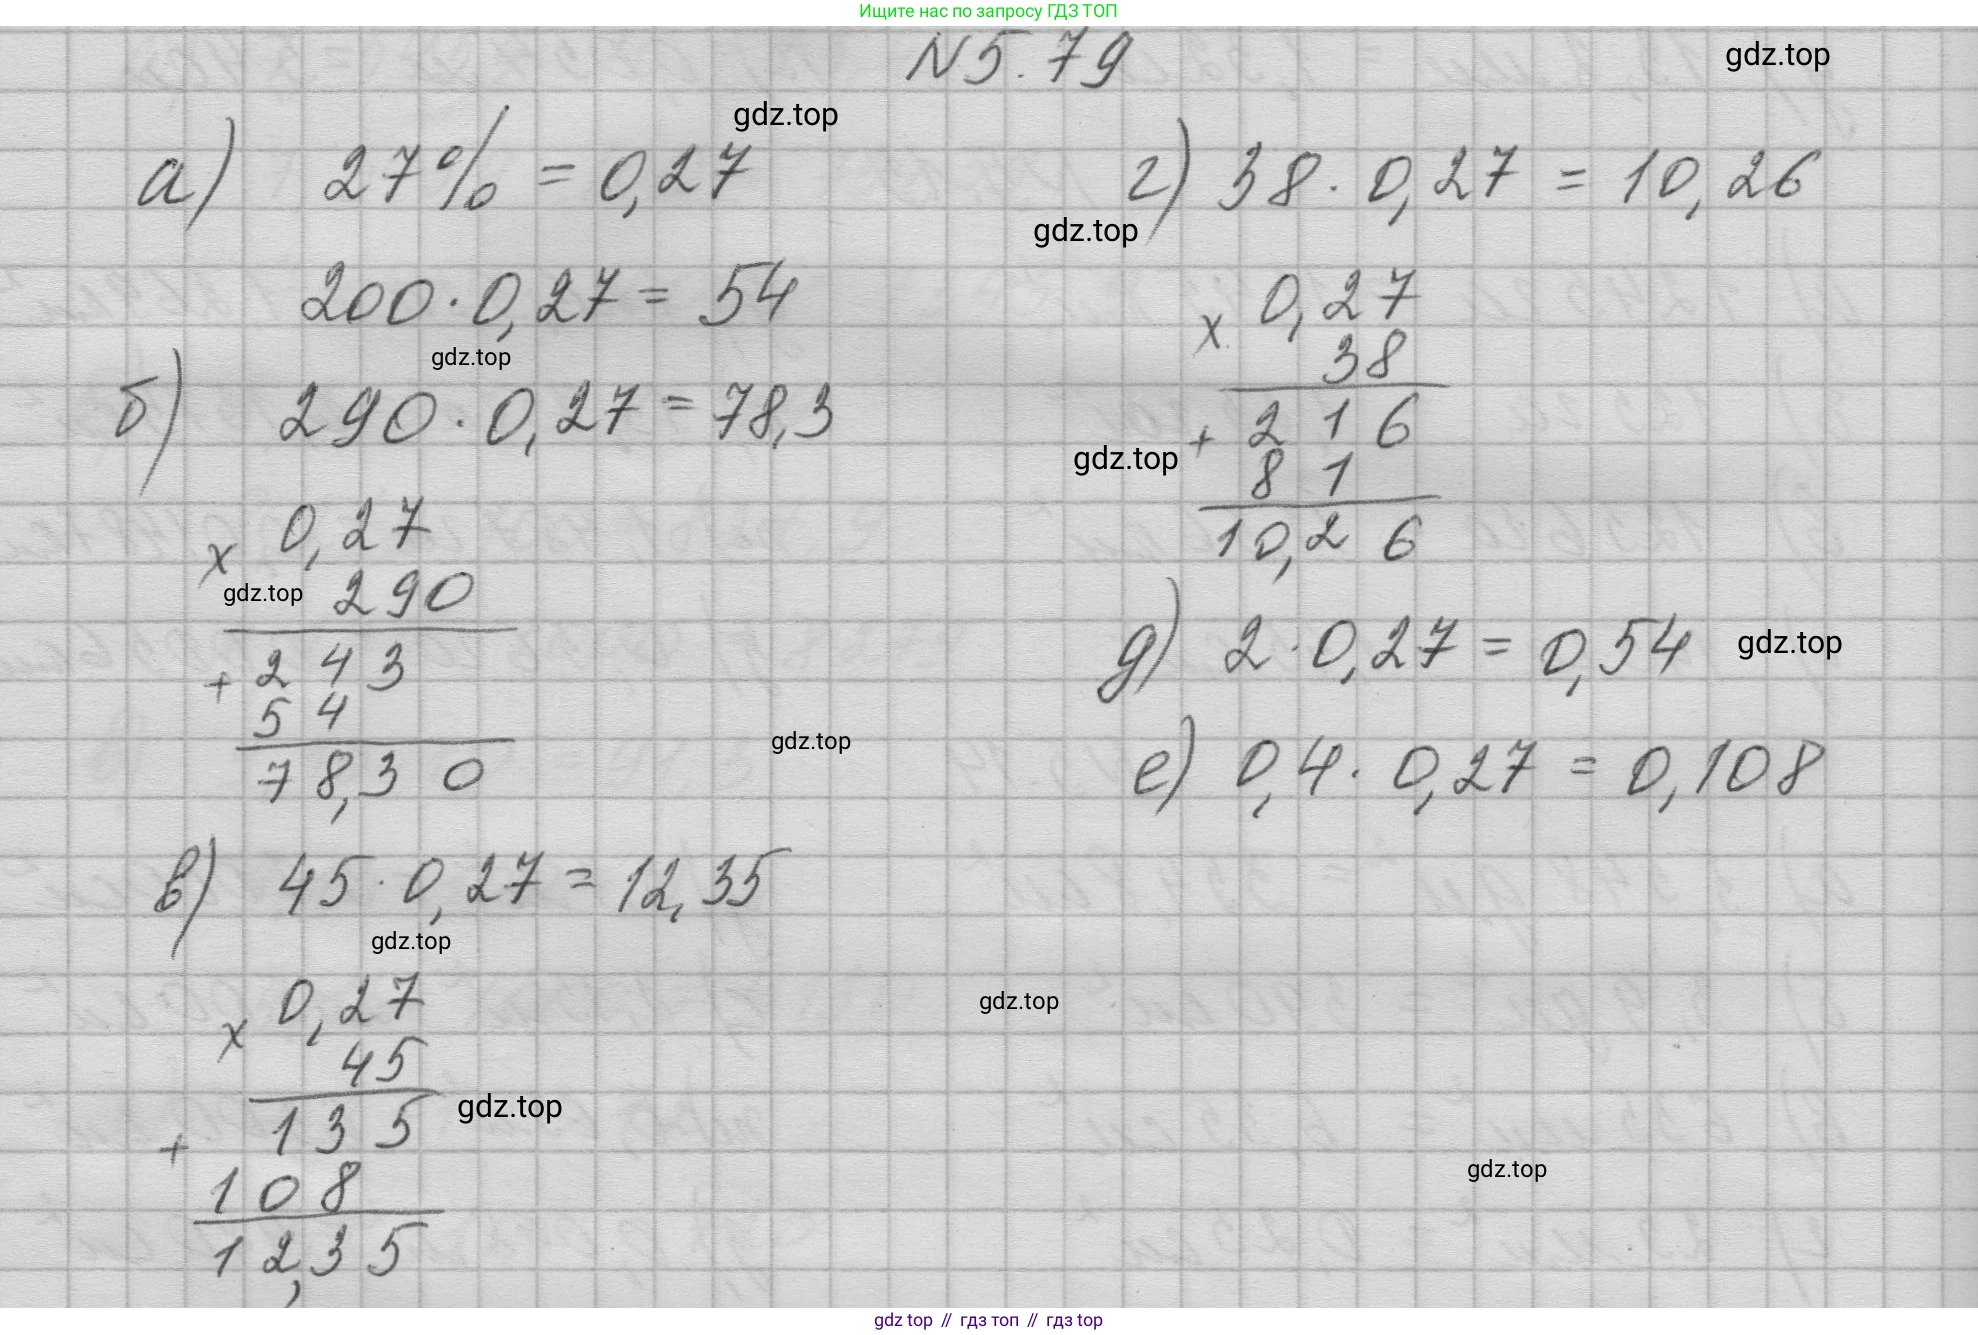 Ищите нас по запросу ГДЗ ТОП
N 5.79
gdz.top
gdz.top
а) 27% = 0,27
200 · 0,27 = 54
gdz.top
б) 290 · 0,27 = 78,3
x 0,27
gdz.top 290
+ 2 4 3
5 4
7 8,3 0
gdz.top
в) 45 · 0,27 = 12,35
gdz.top
x 0,27
45
1 3 5 gdz.top
+
1 0 8
1 2,3 5
г) 38 · 0,27 = 10,26
gdz.top
x 0,27
38
+ 2 1 6
gdz.top 8 1
1 0,2 6
д) 2 · 0,27 = 0,54 gdz.top
е) 0,4 · 0,27 = 0,108
gdz.top
gdz.top
gdz top // гдз топ // гдз top